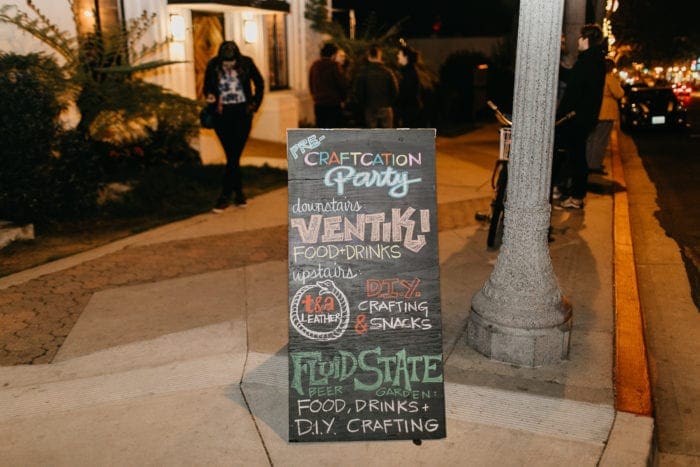 PRE-
CRAFTCATION
Party
downstairs:
VENTIKI!
FOOD+DRINKS
upstairs:
t&a
LEATHER
&
D.I.Y.
CRAFTING
SNACKS
FLUID STATE
BEER GARDEN:
FOOD, DRINKS +
D.I.Y. CRAFTING